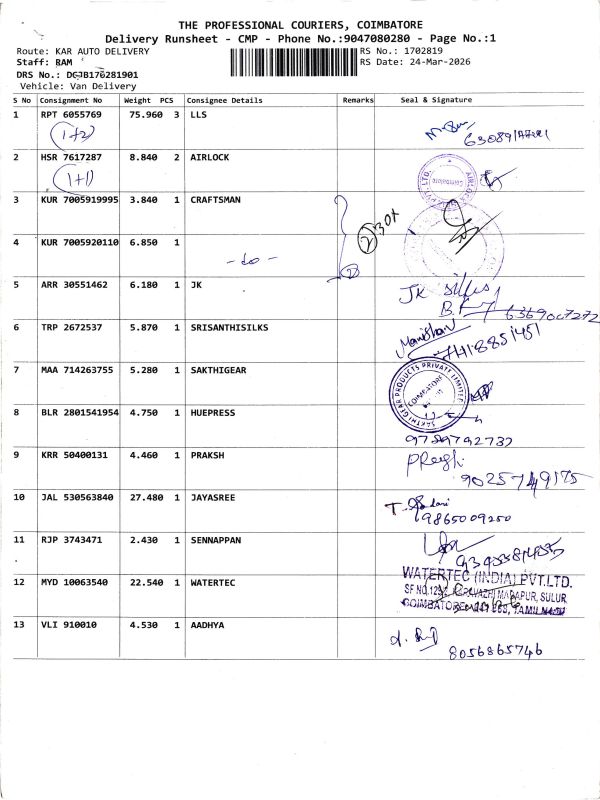 THE PROFESSIONAL COURIERS, COIMBATORE
Delivery Runsheet - CMP - Phone No.:9047080280 - Page No.:1
Route: KAR AUTO DELIVERY
RS No.: 1702819
Staff: RAM
RS Date: 24-Mar-2026
DRS No.: DGJB176281901
Vehicle: Van Delivery
S No Consignment No Weight PCS Consignee Details Remarks Seal & Signature
1 RPT 6055769 75.960 3 LLS
(1+2)
2 HSR 7617287 8.840 2 AIRLOCK
(1+1)
3 KUR 7005919995 3.840 1 CRAFTSMAN
2 BOX
4 KUR 7005920110 6.850 1
-do-
5 ARR 30551462 6.180 1 JK
JK silks
6369007272
6 TRP 2672537 5.870 1 SRISANTHISILKS
7 MAA 714263755 5.280 1 SAKTHIGEAR
SAKTHI GEAR PRODUCTS PRIVATE LIMITED
COIMBATORE
8 BLR 2801541954 4.750 1 HUEPRESS
9789792737
9 KRR 50400131 4.460 1 PRAKSH
9025749175
10 JAL 530563840 27.480 1 JAYASREE
9865009250
11 RJP 3743471 2.430 1 SENNAPPAN
12 MYD 10063540 22.540 1 WATERTEC
WATERTEC (INDIA) PVT.LTD.
SULUR
TAMIL NADU
13 VLI 910010 4.530 1 AADHYA
8056865746